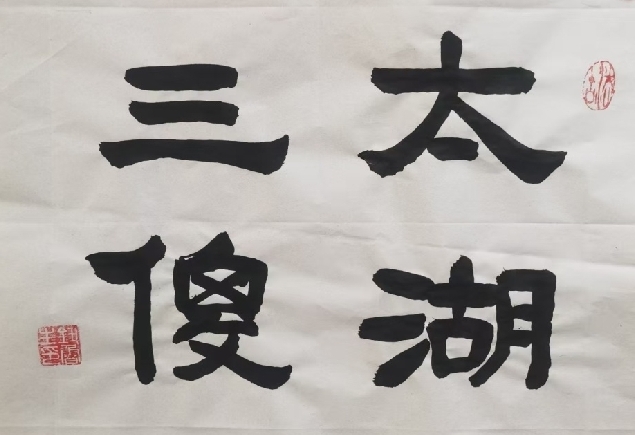 太湖
三傻